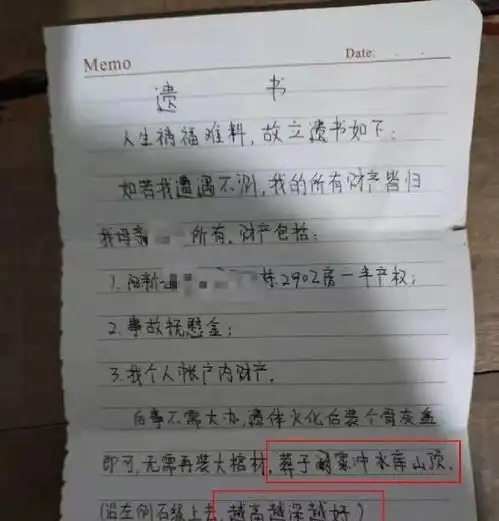 Memo
Date:
遗 书
人生祸福难料，故立遗书如下：
如若我遭遇不测，我的所有财产皆归
我母亲 所有，财产包括：
1. 阳新 栋2902房一半产权；
2. 事故抚慰金；
3. 我个人帐户内财产。
后事不需大办，遗体火化后装个骨灰盒
即可，无需再装大棺材，葬于 家冲水库山顶，
（沿左侧石级上去，越高越深越好）